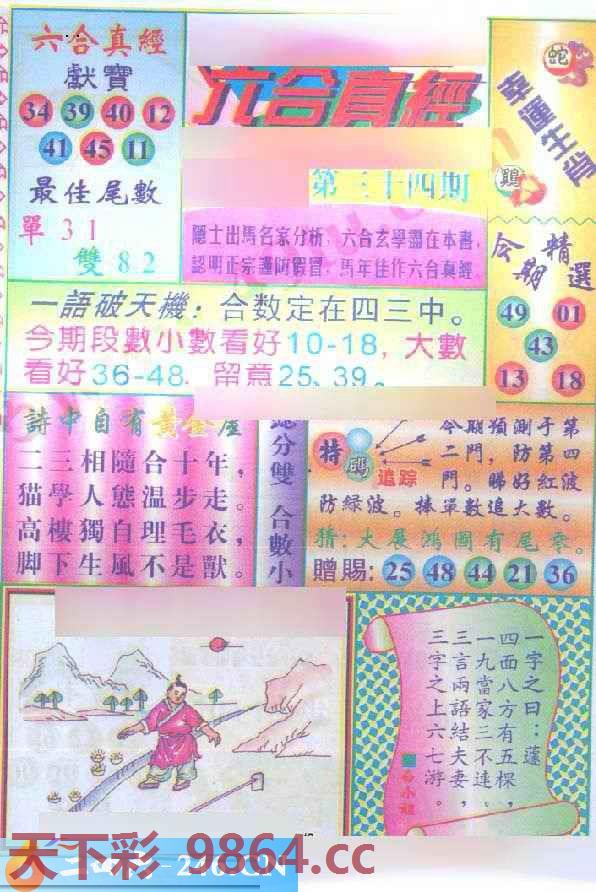 六合真經
獻寶
34 39 40 12
41 45 11
最佳尾數
單 31
雙 82
六合真經
第三十四期
隱士出馬名家分析,六合玄學盡在本書,
認明正宗謹防假冒,馬年佳作六合真經
蛇
幸運生肖
鷄
今期精選
49 01
43
13 18
一語破天機:合数定在四三中。
今期段數小數看好10-18,大數
看好36-48,留意25、39。
詩中自有黃金屋
二三相隨合十年,
猫學人態温步走。
高樓獨自理毛衣,
脚下生風不是獸。
分雙 合數小
特碼追踪
第
二門,防第四
門。睇好紅波
防緑波。捧單數追大數。
猜:大展鴻圖有尾零。
贈賜:25 48 44 21 36
一字之曰:蓬
四面八方有五棵,
一九當家三不連。
三言兩語結夫妻,
三字之上六七游。
天下彩 9864.cc